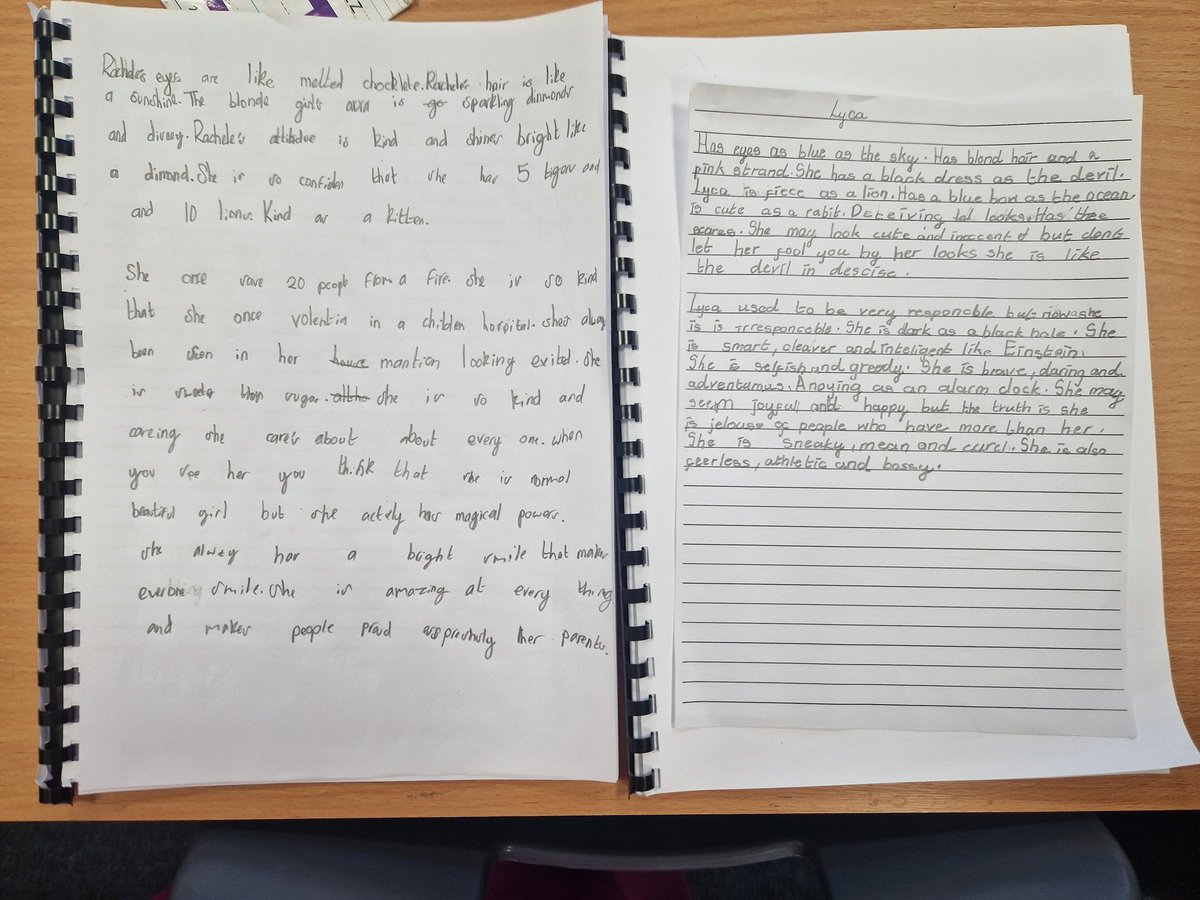 Rachele's eyes are like melted chocklete. Rachele's hair is like
a sunshine. The blonde girls aura is go sparkling dinmonds
and divney. Rachele's attitidue is kind and shines bright like
a dimond. She is so confiden that she has 5 tigars and
and 10 lions. Kind as a kitten.
She once save 20 people from a fire. she is so kind
that she once volentia in a childen hospital. she's alway
been seen in her house mantion looking exited. she
is sweeter than sugar. altho she is so kind and
careing she care's about about every one. when
you see her you think that she is normal
beautiful girl but she actely has magical powers.
she alway has a bright smile that makes
smile. she is amazing at every thing
and makes people proud her parents.
Lyca
Has eyes as blue as the sky. Has blond hair and a
pink strand. She has a black dress as the devil.
Lyca is fiece as a lion. Has a blue bow as the ocean
is cute as a rabit. Deceiving looks. Has
scares. She may look cute and inoccent but dont
let her fool you by her looks she is like
the devil in descise.
Lyca used to be very responcble but now she
is is irresponcable. She is dark as a black hole. She
is smart, cleaver and inteligent like Einstein.
She is selfish and greedy. She is brave, daring and
adventumus. Anoying as an alarm clock. She may
seem joyful and happy but the truth is she
is jelouse of people who have more than her.
She is sneaky, mean and curel. She is also
feerless, athletic and bossy.